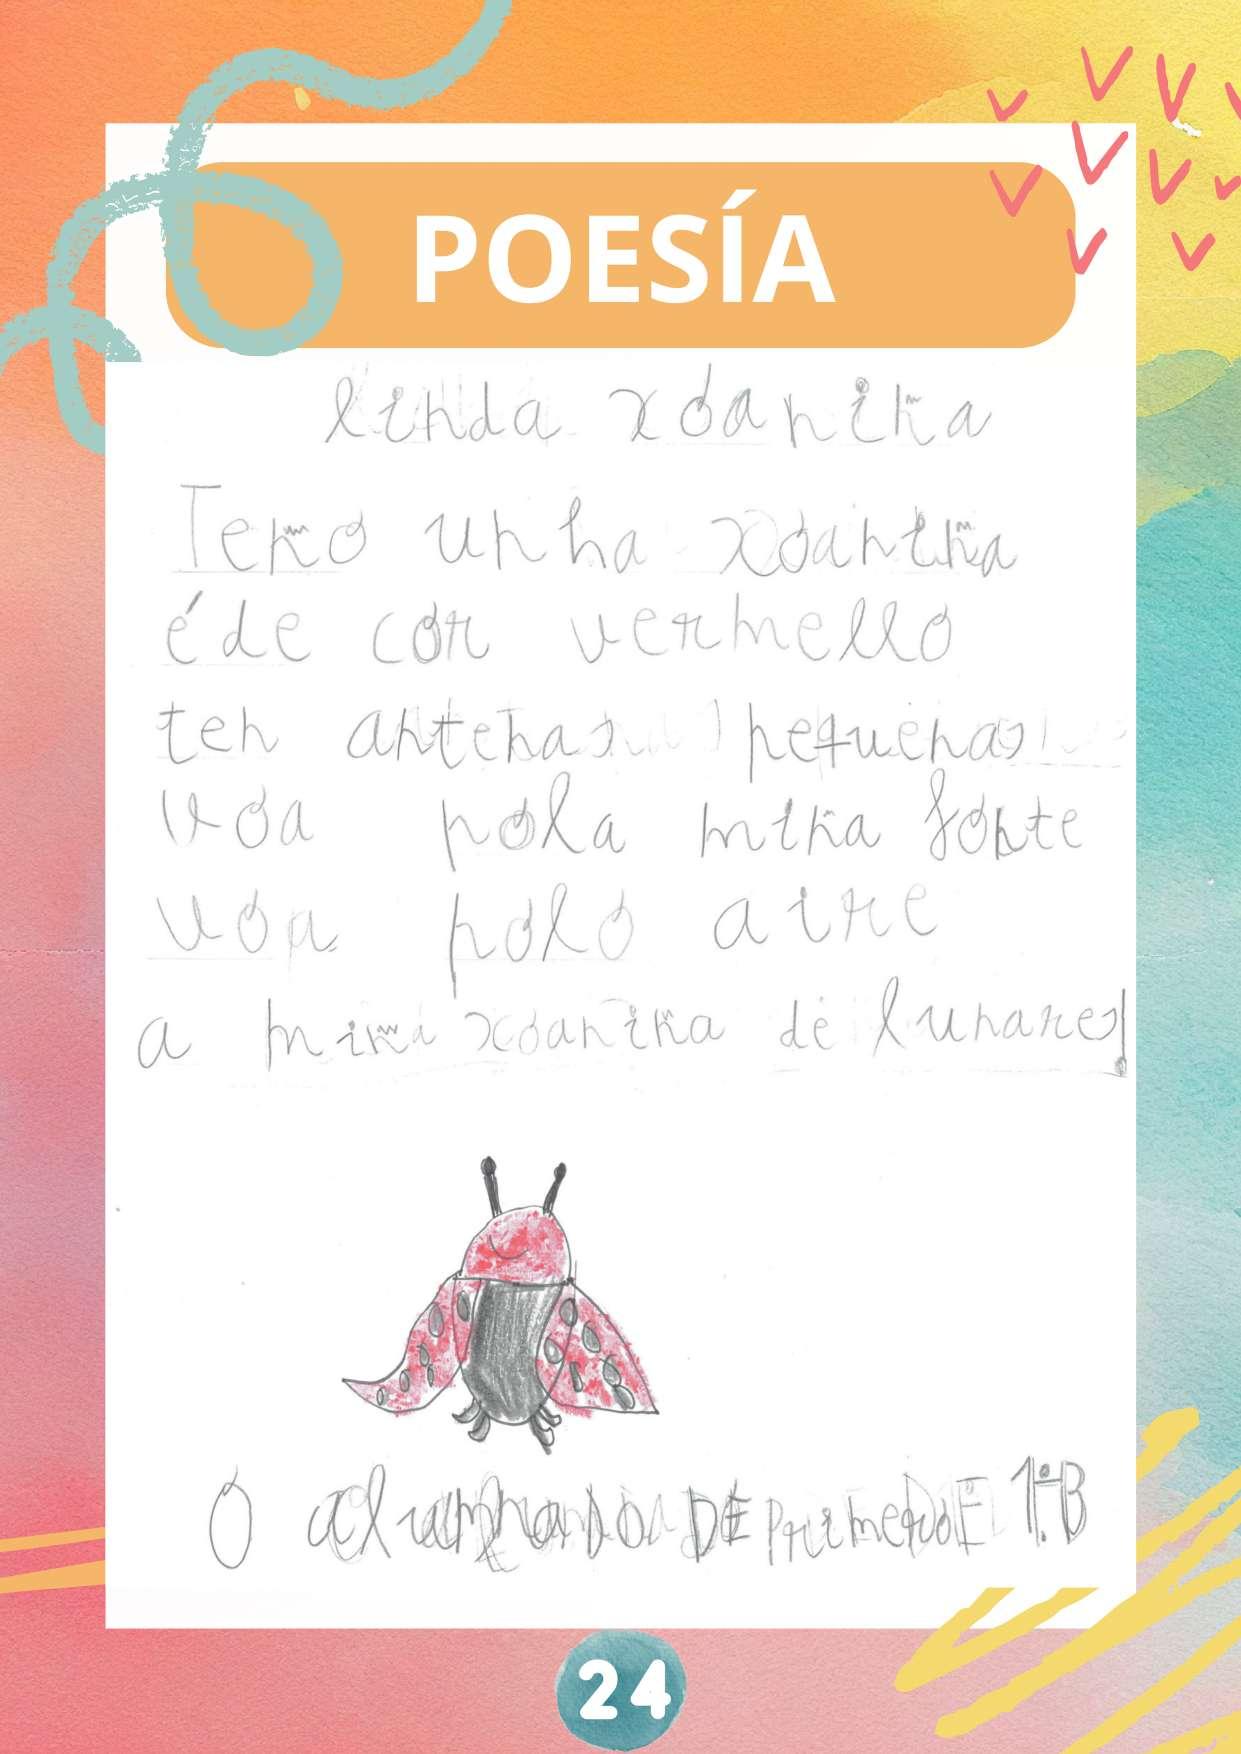 POESÍA
linda xoaniña
Teño unha xoaniña
é de cor vermello
ten antenas pequenas
voa pola miña fonte
voa polo aire
a miña xoaniña de lunares!
O alumnado DE primeiro E 1º B
24